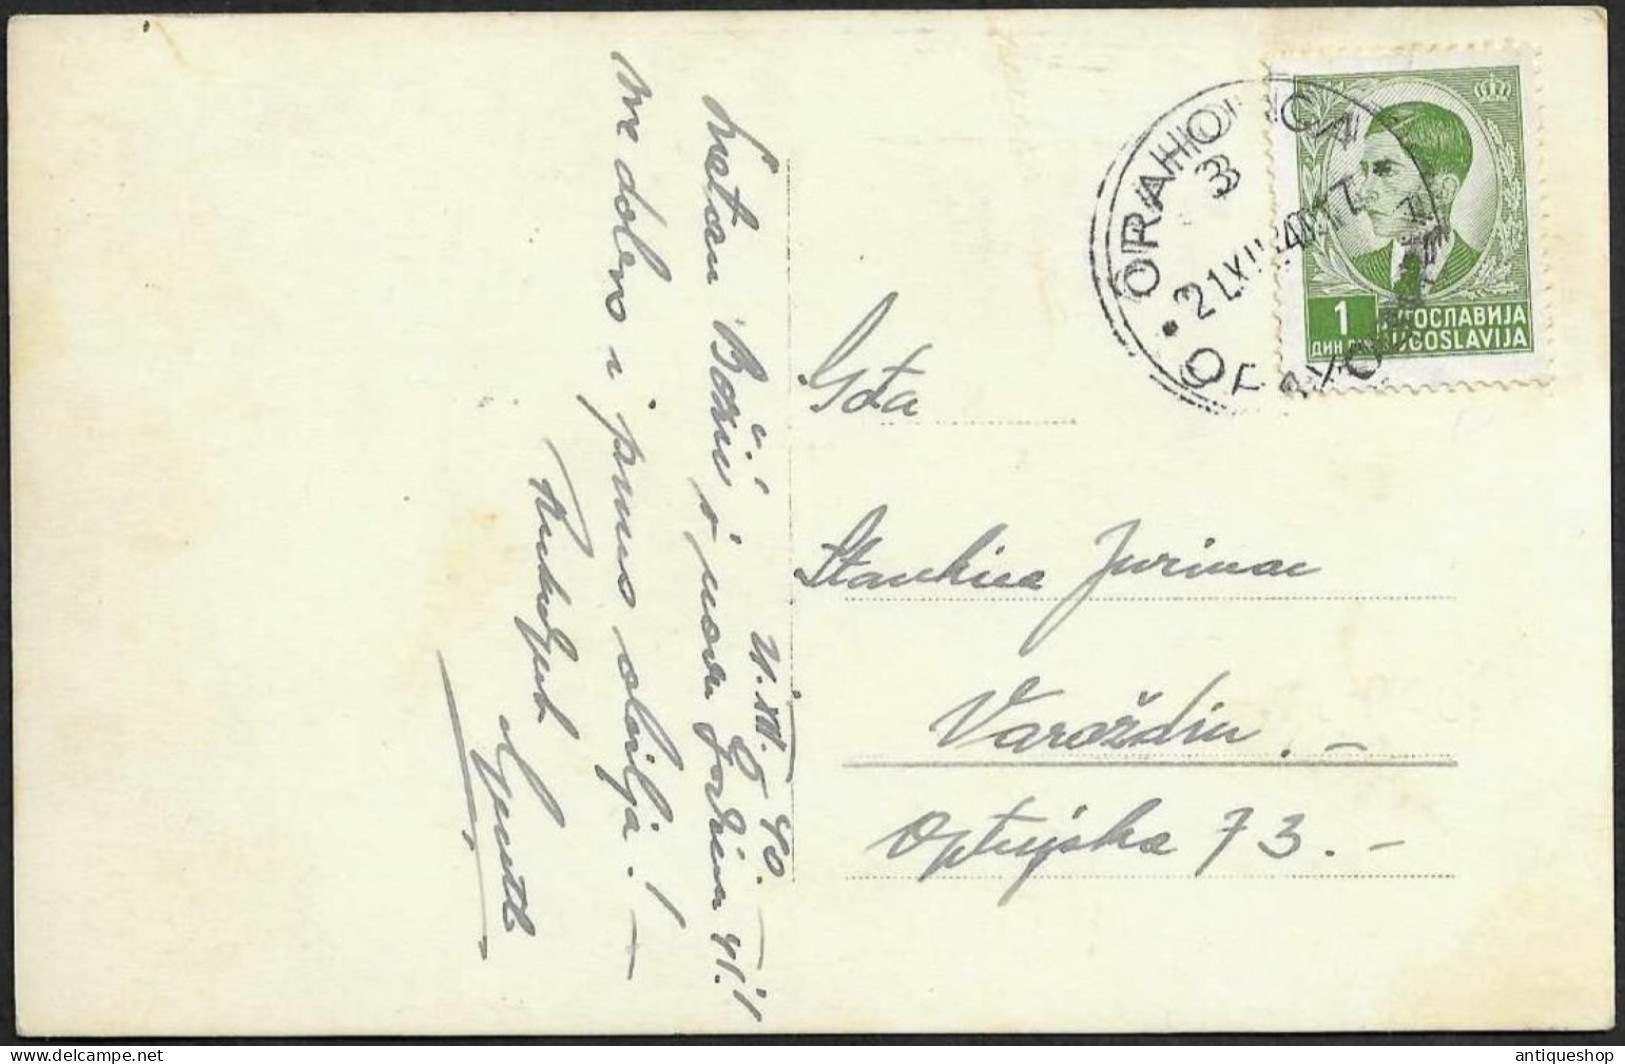 21. XII. 40.
Sretan Božić i novu Godinu
sve dobro i puno obilja!
Rukoljub
ORAHOVICA
3
21.XII.40.17
ОРАХОВИЦА
1
ДИН
ЈУГОСЛАВИЈА
JUGOSLAVIJA
Gđa
Stankica Jurinac
Varaždin. —
Optujska 73. —
antiqueshop